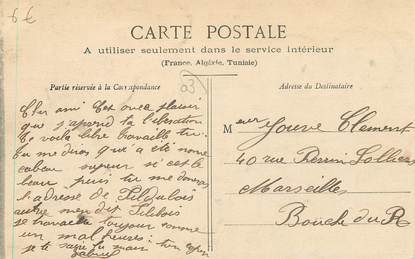 6 €
CARTE POSTALE
A utiliser seulement dans le service intérieur
(France, Algérie, Tunisie)
Partie réservée à la Correspondance
Adresse du Destinataire
03
Cher ami C'est avec plaisir
que j'aprend ta libération
te voila libre travaille tu
tu me diras qui a été nomé
si c'est le
beau puis tu me donera
l'adresse de
autre
je travaille toujour comme
un malheureux
je te serre la main ton copin
Gabriel
Monsieur
Jouve Clément
40 rue
Marseille
Bouche du R